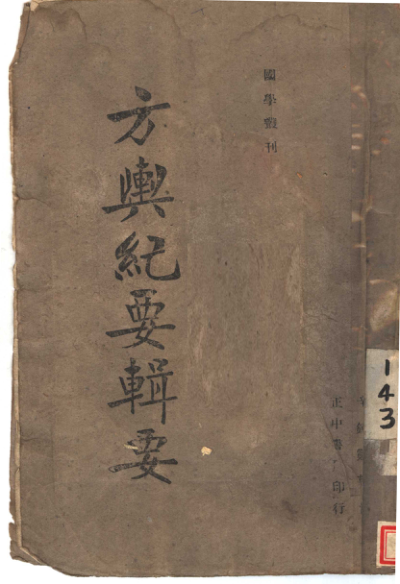 國學叢刊
方輿紀要輯要
正中書 印行
143